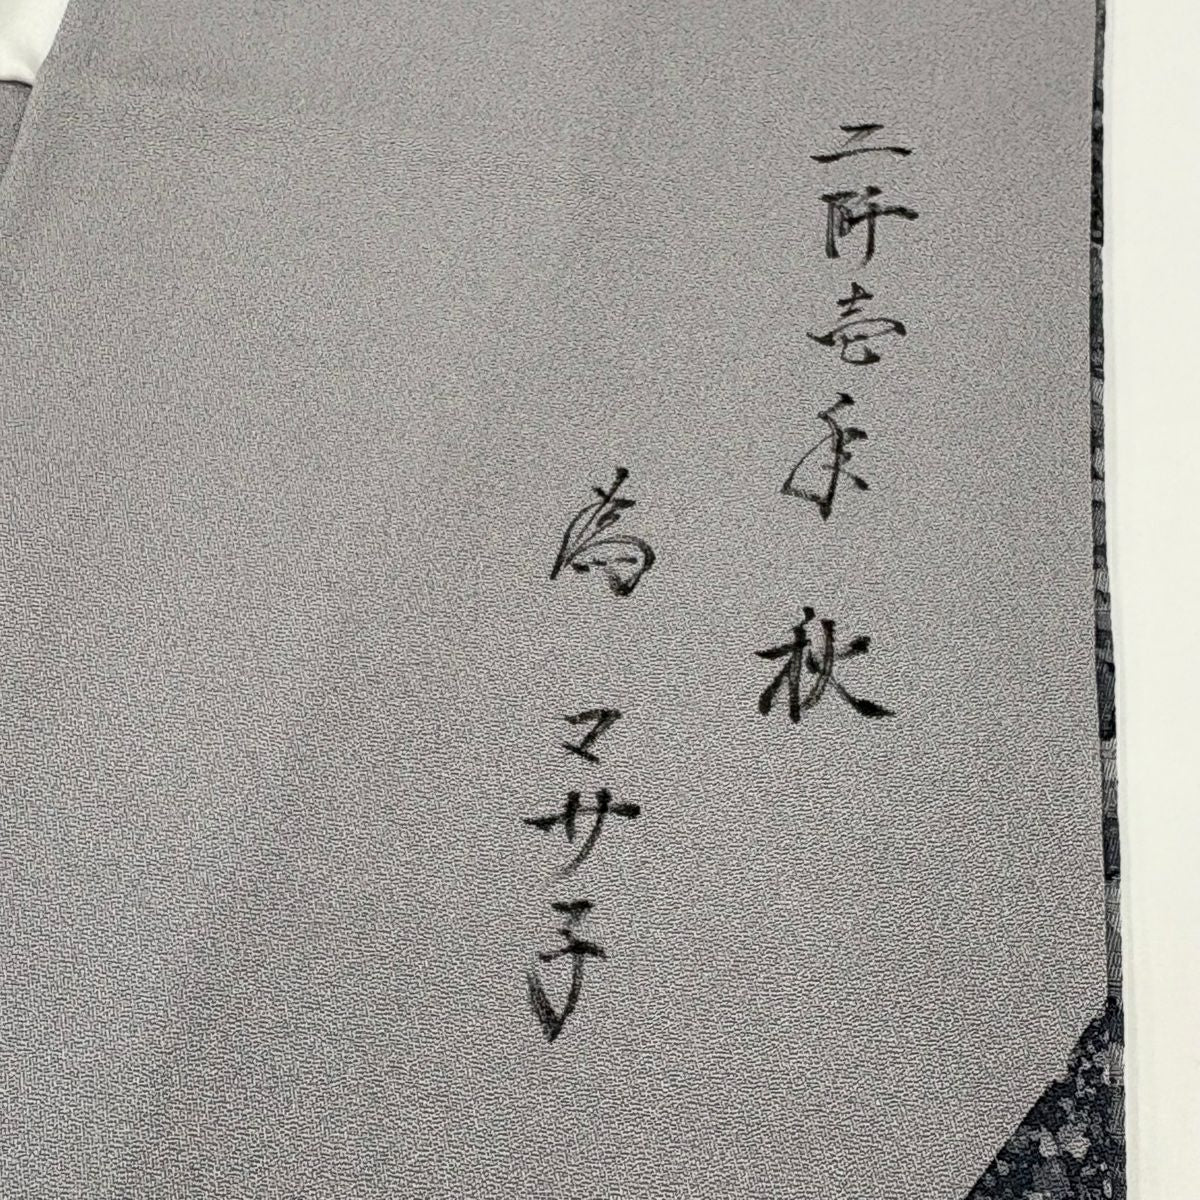 二阡壱年 秋
為 マサ子